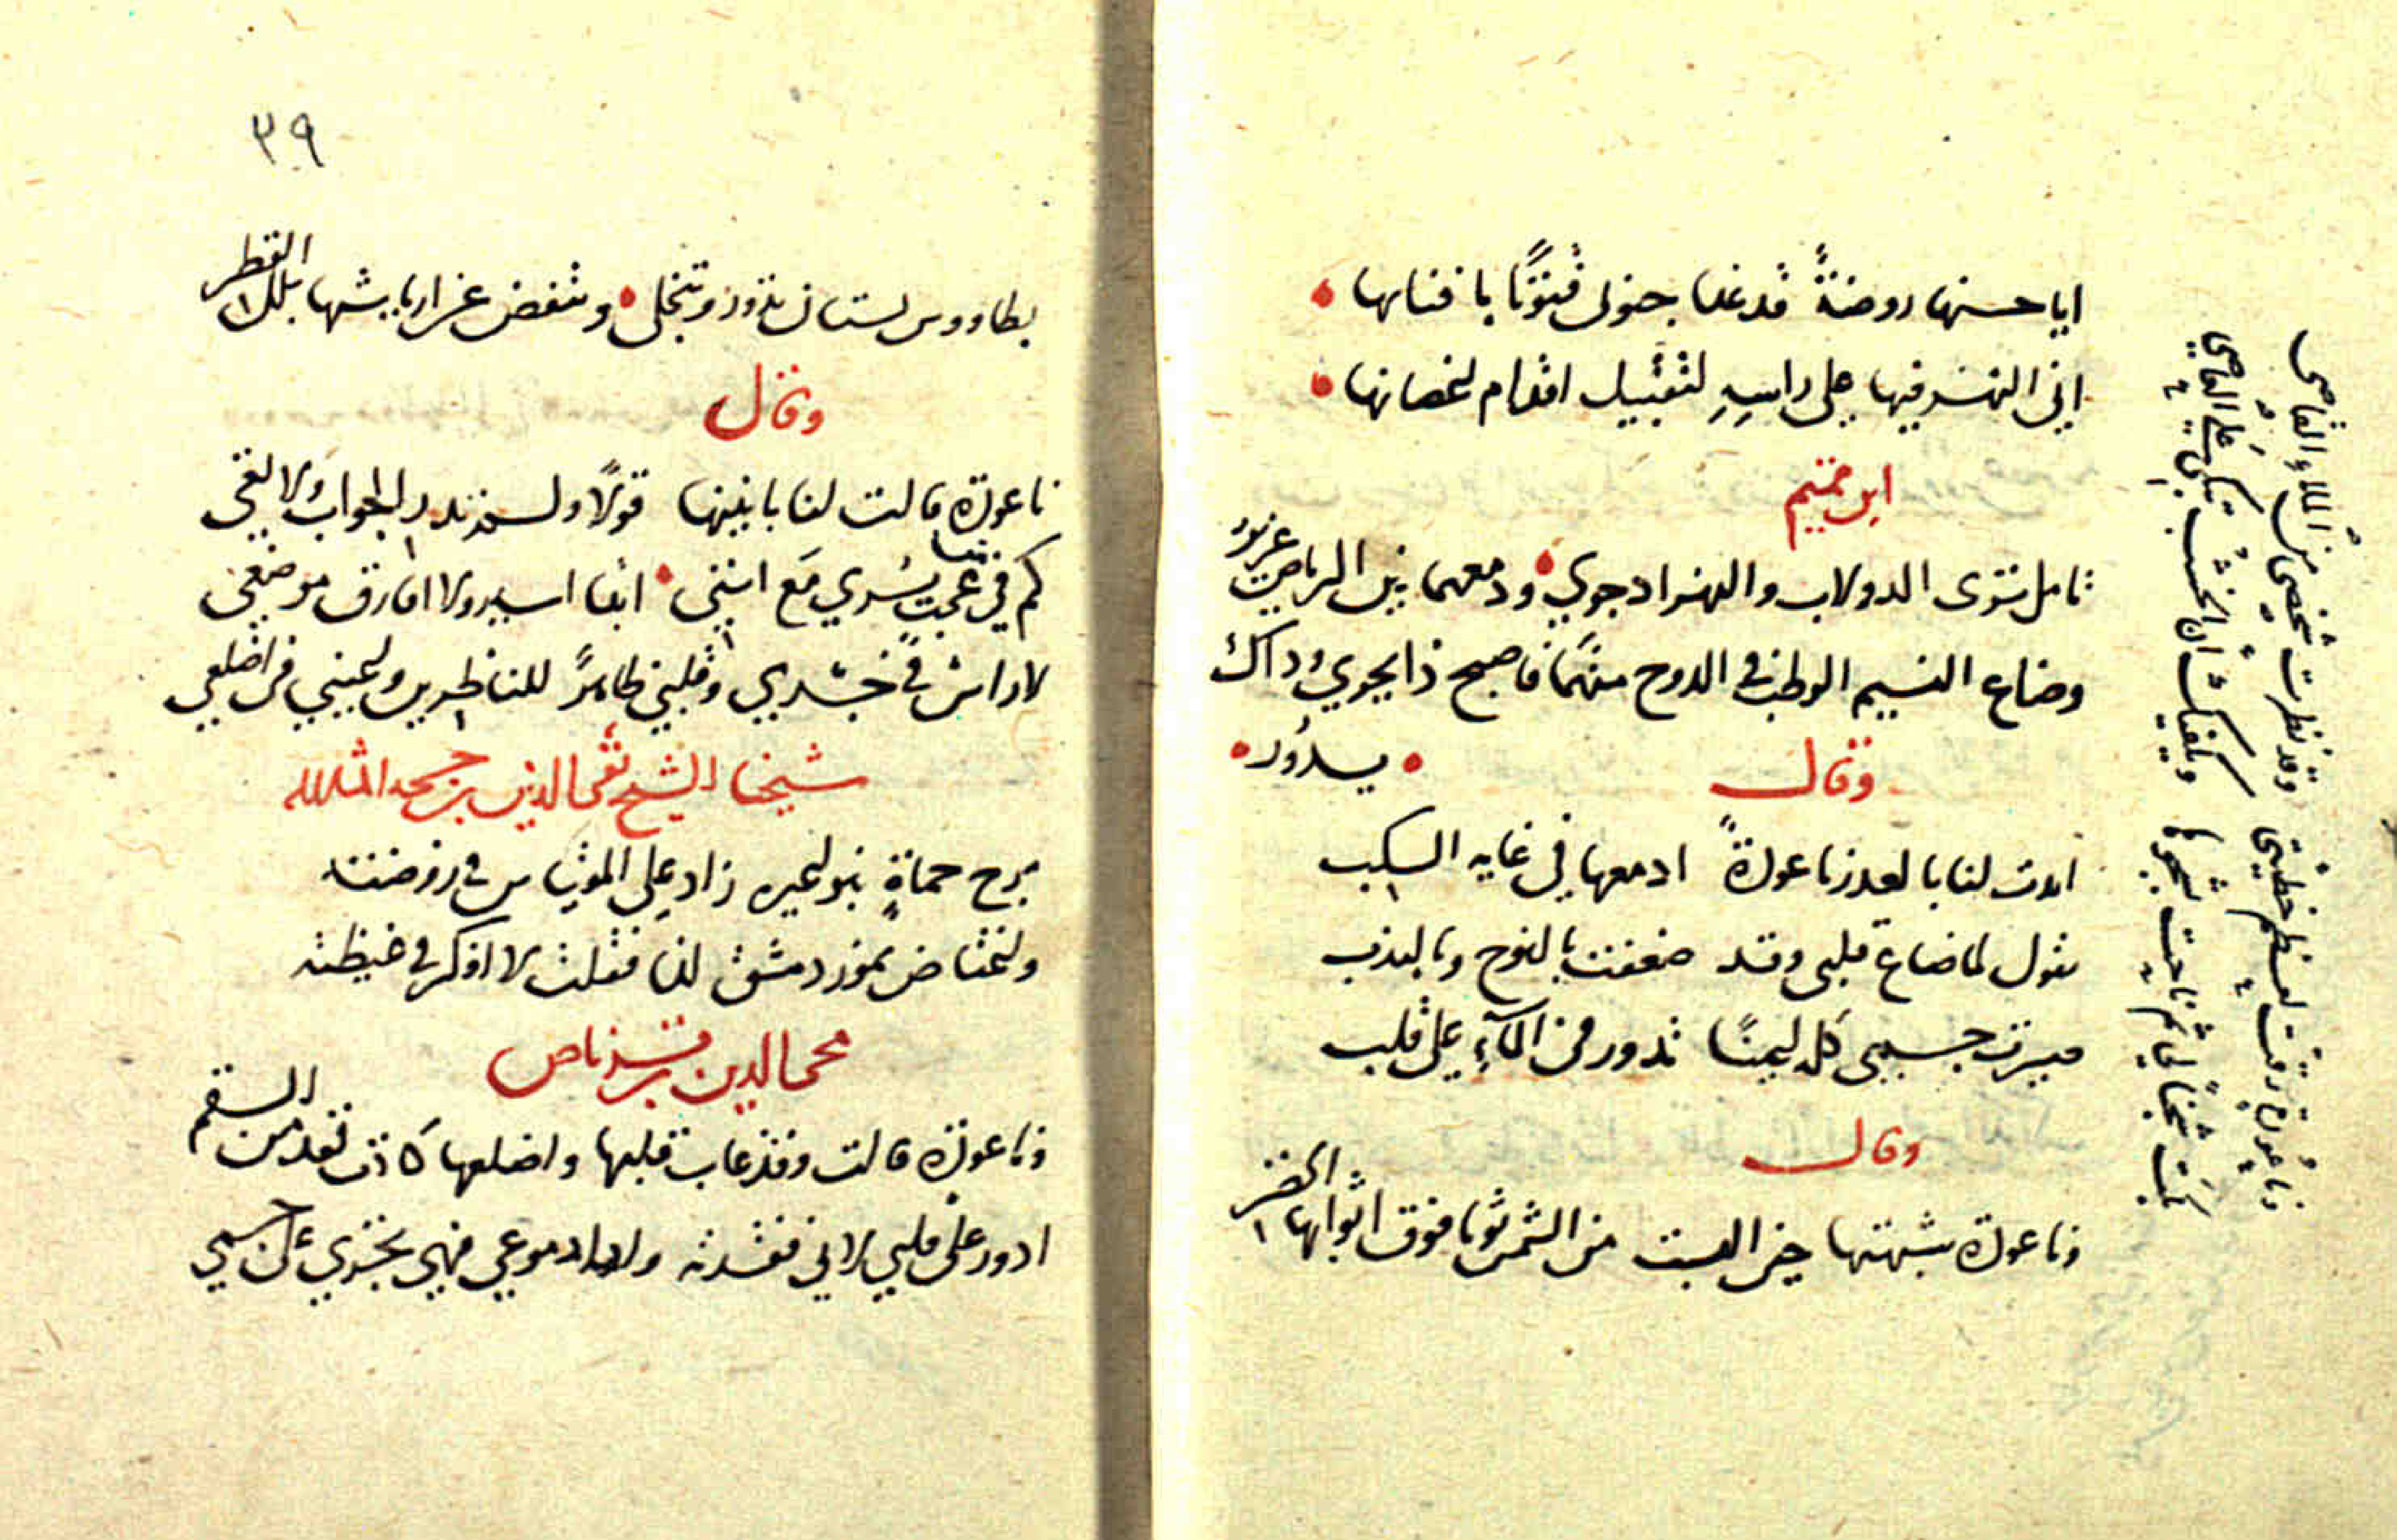 ايا حسنها روضةً قد غدا جنوني فنونًا بافنانها
اتى النهر فيها على راسِهِ لتقبيل اقدام اغصانها
ابن تميم
تامل ترى الدولاب والنهر اذ جرى ودمعهما بين الرياض غزير
وضاع النسيم الرطب في الدوح منهما فاصبح ذا يجري وذاك
يدور
وقال
ابدت لنا بالعذر ناعورةً ادمعها في غايه السكب
تقول لما ضاع قلبي وقد ضعفت بالنوح وبالندب
صيرت جسمي كله اعينًا تدور في المآء على قلب
وقال
وناعورة شبهتها حين البست من الشمس ثوبا فوق اثوابها الخضر
وناعورة رقت لعظم خطيئتي وقد نظرت شخصي من المنزل القاصي
بكت شجنًا لي ثم ناحت لشجوها ويكفيك ان الخشب تبكي على العاصي
٣٩
بطاووس بستان تدور وتنجلي وتنفض عن ارياشها بلل القطر
وقال
ناعورة قالت لنا بانينها قولًا ولم تدر الجواب ولا تعي
كم في من عجب يرى مع انني ابدا اسير ولا افارق موضعي
لا راس في جسدي وقلبي ظاهرً للناظرين واعيني في اضلعي
شيخنا الشيخ تقي الدين بن حجه امتع الله
مرج حماةٍ بنواعيره زاد على المقياس في روضته
واغتاض نهور دمشق لذا فقلت لا افكر في غيظته
مجير الدين بن قرناص
وناعورة قالت وقد غاب قلبها واضلعها كادت تعد من السقم
ادور على قلبي لاني فقدته واما دموعي فهي تجري على جسمي